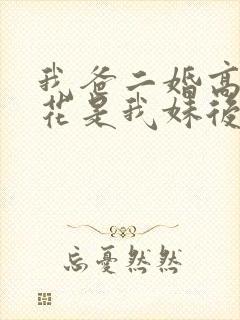 我爸二婚高
花是我妹後
忘憂然然